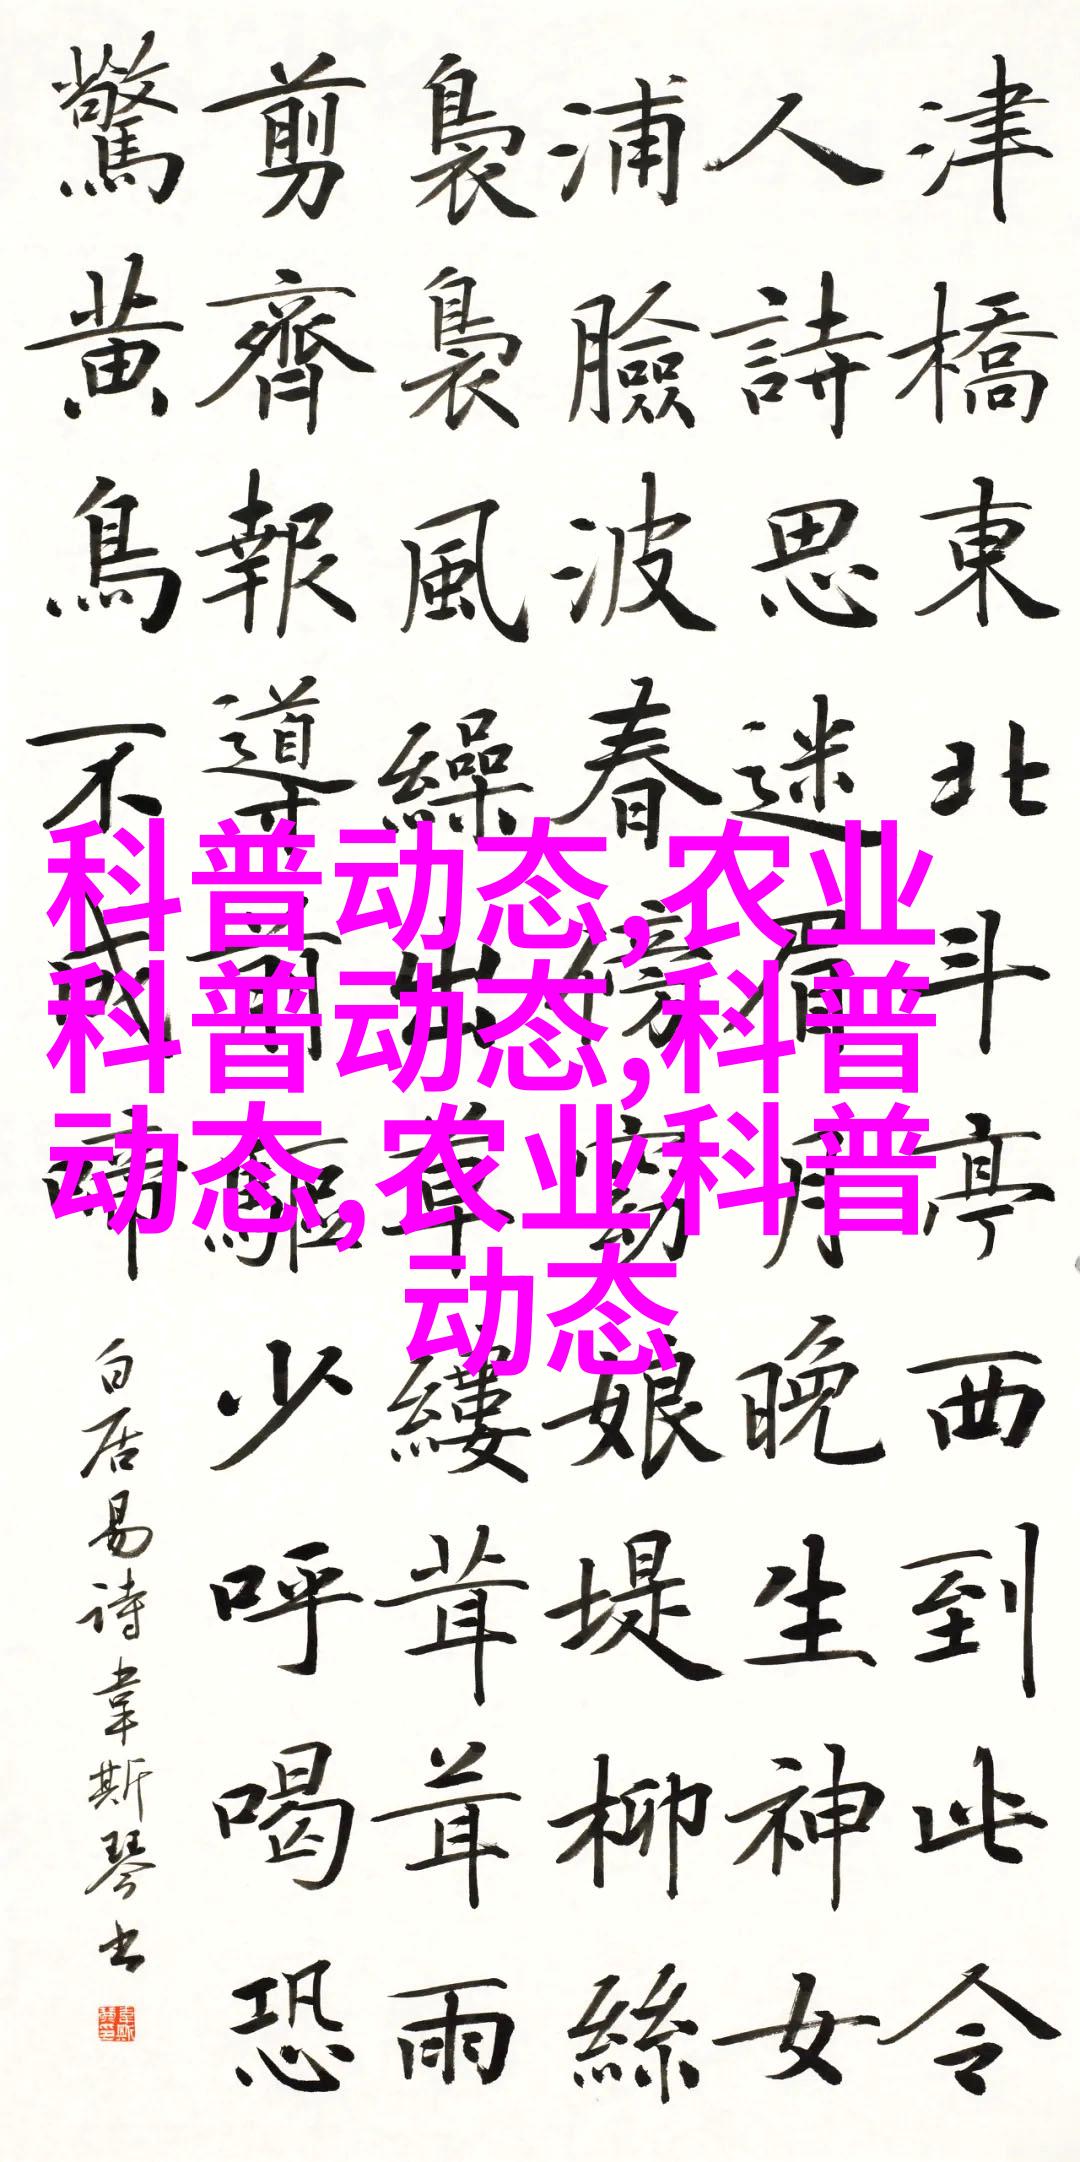 津橋東北斗亭西到此令
人詩思迷眉月晚生神女
浦臉波春傍窈娘堤柳絲
裊裊風繰出草縷茸茸雨
剪齊報導前驅少呼喝恐
驚黃鳥不成啼
白居易诗韋斯琴书
科普动态,农业
科普动态,科普
动态,农业科普
动态